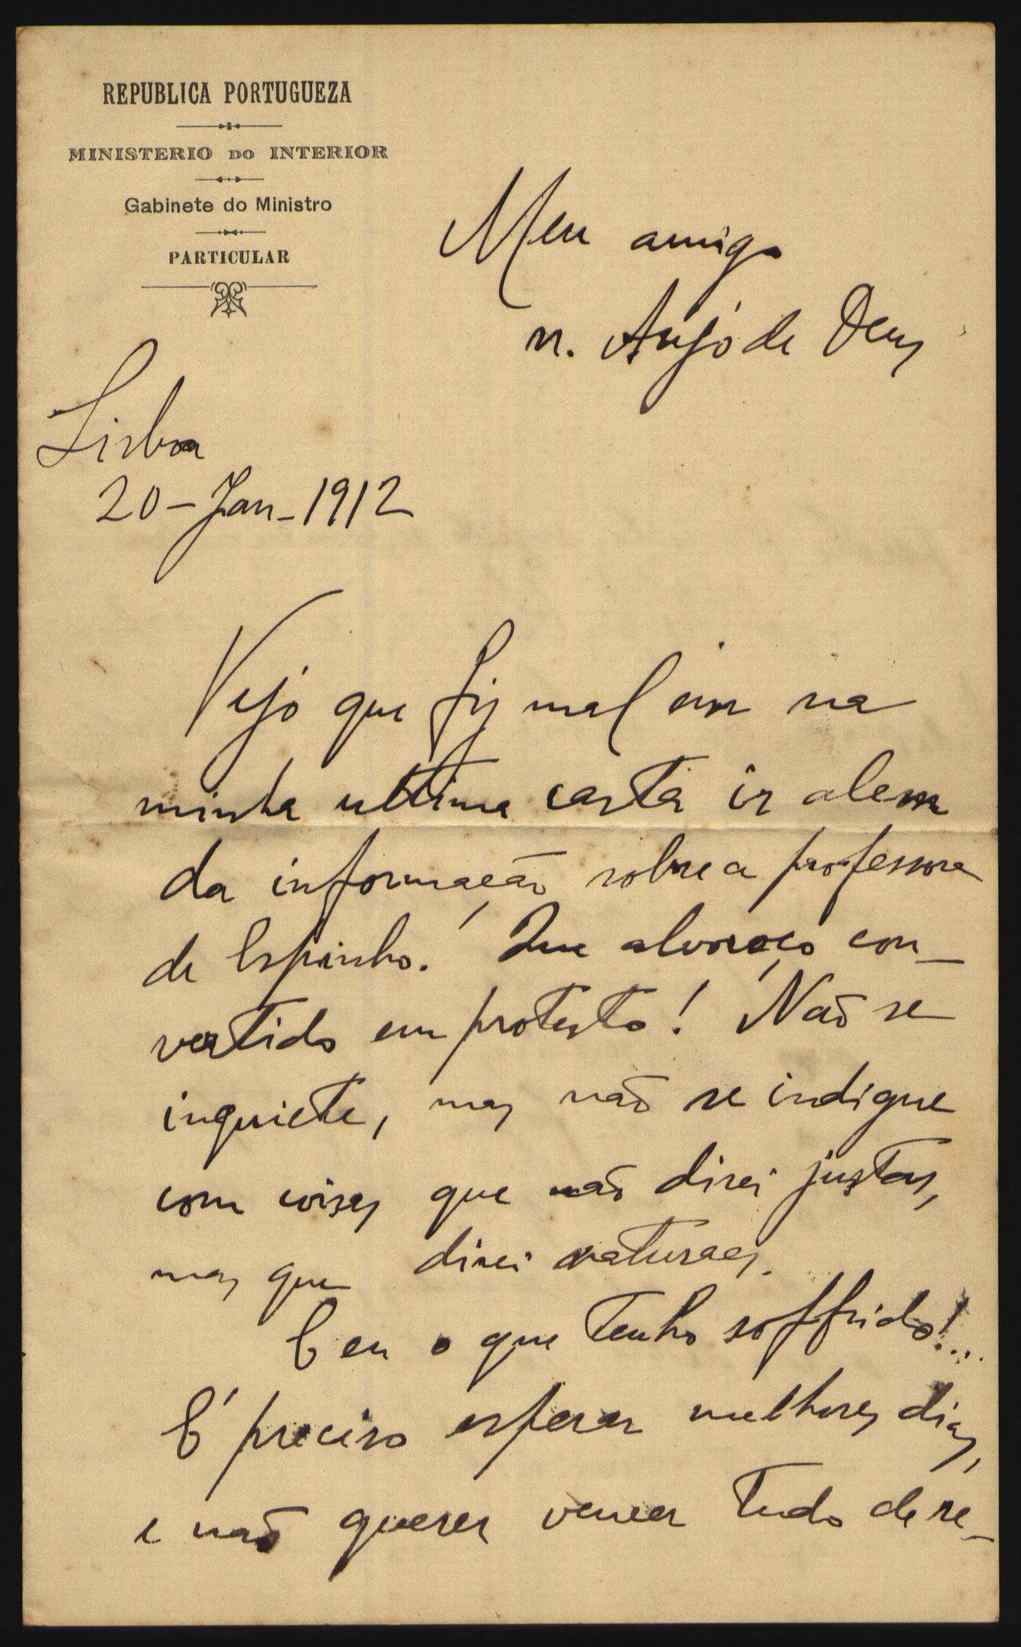 REPUBLICA PORTUGUEZA
MINISTERIO DO INTERIOR
Gabinete do Ministro
PARTICULAR
Meu amigo
n. Anjo de Deus
Lisboa
20-Jan-1912
Vejo que fiz mal em na
minha ultima carta ir alem
da informação sobre a professora
de Espinho. Que alvoroço con-
vertido em protesto! Não se
inquiete, mas não se indigne
com coisas que não direi justas,
mas que direi naturaes.
E eu o que tenho soffrido!...
E' preciso esperar melhores dias,
e não querer vencer tudo de re-